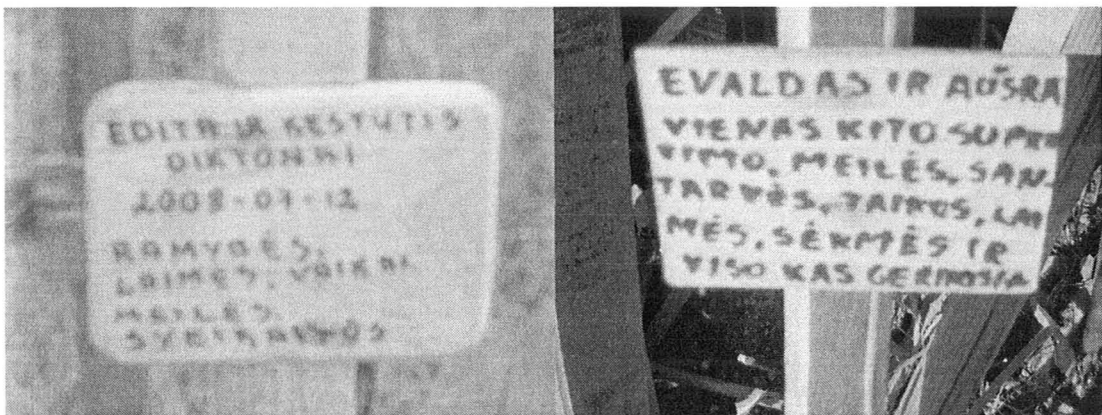 EDITA IR KESTUTIS
DIKTONAI
2008-07-12
RAMYBĖS,
LAIMĖS, VAIKAI
MEILĖS,
SVEIKATOS
EVALDAS IR AUŠRA
VIENAS KITO SUPRA
TIMO, MEILĖS, SAN-
TARVĖS, TAIKOS, LAI
MĖS, SĖKMĖS IR
VISO KAS GERIAUSIA